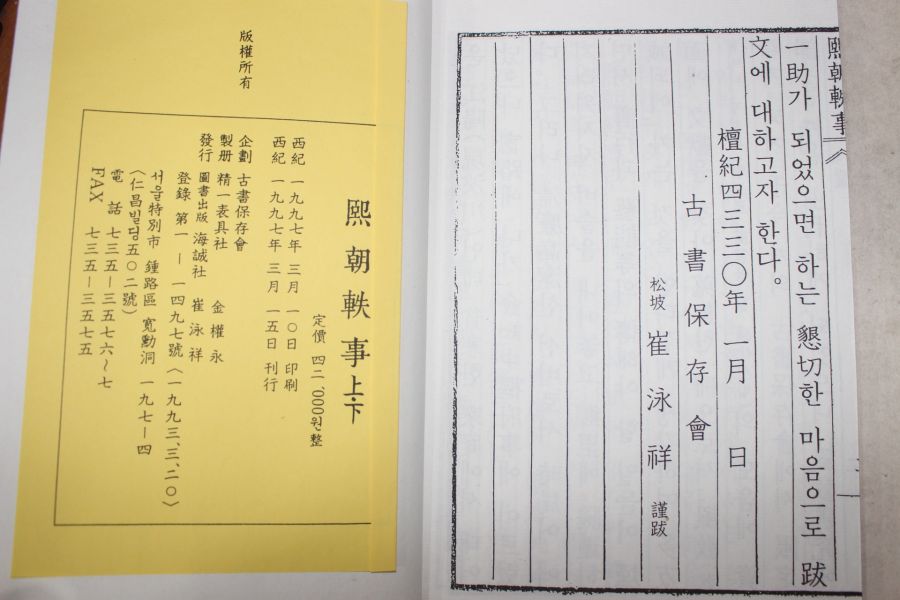 熙朝軼事
一助가 되었으면 하는 懇切한 마음으로 跋
文에 대하고자 한다。
檀紀四三三〇年 一月 日
古書保存會
松坡 崔泳祥 謹跋
熙朝軼事 上·下
定價 四二,000원整
西紀 一九九七年 三月 一〇日 印刷
西紀 一九九七年 三月 一五日 刊行
企劃 古書保存會
製册 精一表具社 金權永
發行 圖書出版 海誠社 崔泳祥
登錄 第一 — 一四九七號〈一九九三、三、二〇〉
서울特別市 鍾路區 寬勳洞 一九七—四
〈仁昌빌딩五〇二號〉
電話 七三五—三五七六~七
FAX 七三五—三五七五
版權所有